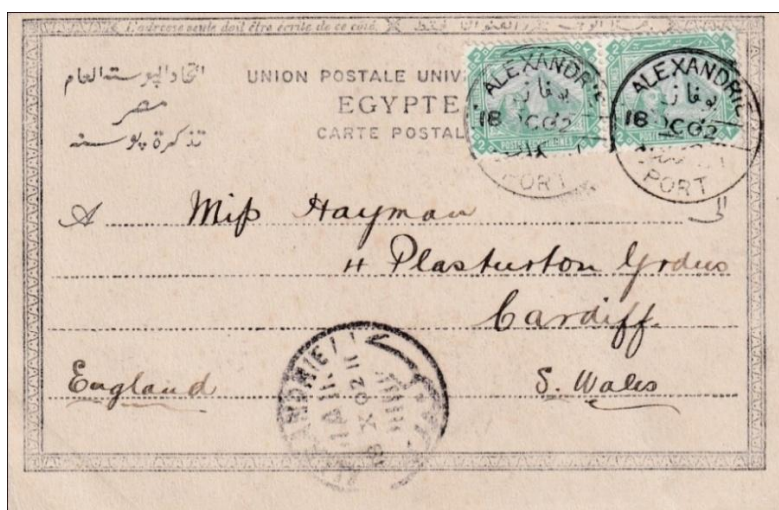 L'adresse seule doit être écrite de ce côté.
اتحاد البوسته العام
مصر
تذكرة بوسته
UNION POSTALE UNIV
EGYPTE
CARTE POSTAL
2
2
ALEXANDRIE
18 OC 02
PORT
ALEXANDRIE
18 OC 02
PORT
A Miss Hayman
11 Plasturton Grdns
Cardiff.
England
S. Wales